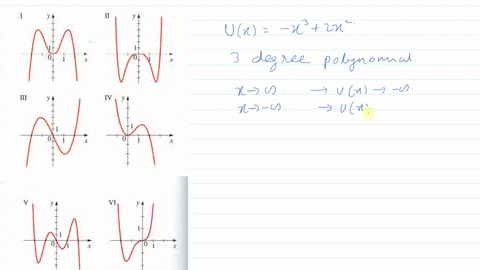 I
y
1
0
1
x
II
y
1
0
1
x
III
y
1
1
x
IV
y
1
0
1
x
V
y
1
0
1
x
VI
y
1
0
1
x
U(x) = -x³ + 2x².
3 degree polynomial
x → ∞. → U(x) → -∞.
x → -∞ → U(x)